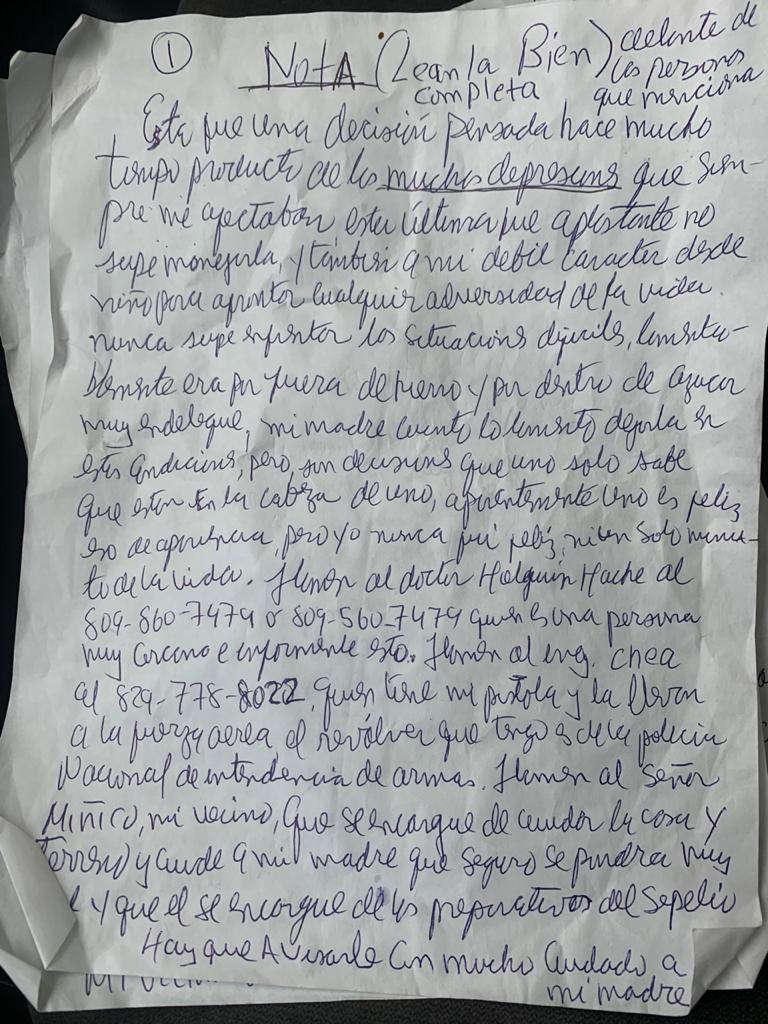 1
NotA (Lean la Bien) delante de
completa las personas
que menciona
Esta fue una decisión pensada hace mucho
tiempo producto de las muchas depresiones que siem-
pre me afectaban esta última fue aplastante no
supe manejarla, y también a mi debil caracter desde
niño para afrontar cualquier adversidad de la vida.
nunca supe enfrentar las situaciones dificiles, lamenta-
blemente era por fuera de hierro y por dentro de azucar
muy endeleque, mi madre cuanto lo lamento dejarla en
estas condiciones, pero, son decisiones que uno solo sabe
que estan en la cabeza de uno, aparentemente uno es feliz
eso de apariencia, pero yo nunca fui feliz, ni un solo minu-
to de la vida. Llamen al doctor Holguin Hache al
809-860-7474 o 809-560-7474 quien es una persona
muy cercana e informenle esto. Llamen al ing. chea
al 829-778-8022, quien tiene mi pistola y la llevan
a la fuerza aerea, el revólver que tengo es de la policia
Nacional de intendencia de armas. Llamen al Señor
Miñico, mi vecino, Que se encargue de cuidar la casa y
terreno y cuide a mi madre que seguro se pondra muy
y que el se encargue de los preparativos del sepelio
Hay que Avisarle Con mucho Cuidado a
mi madre